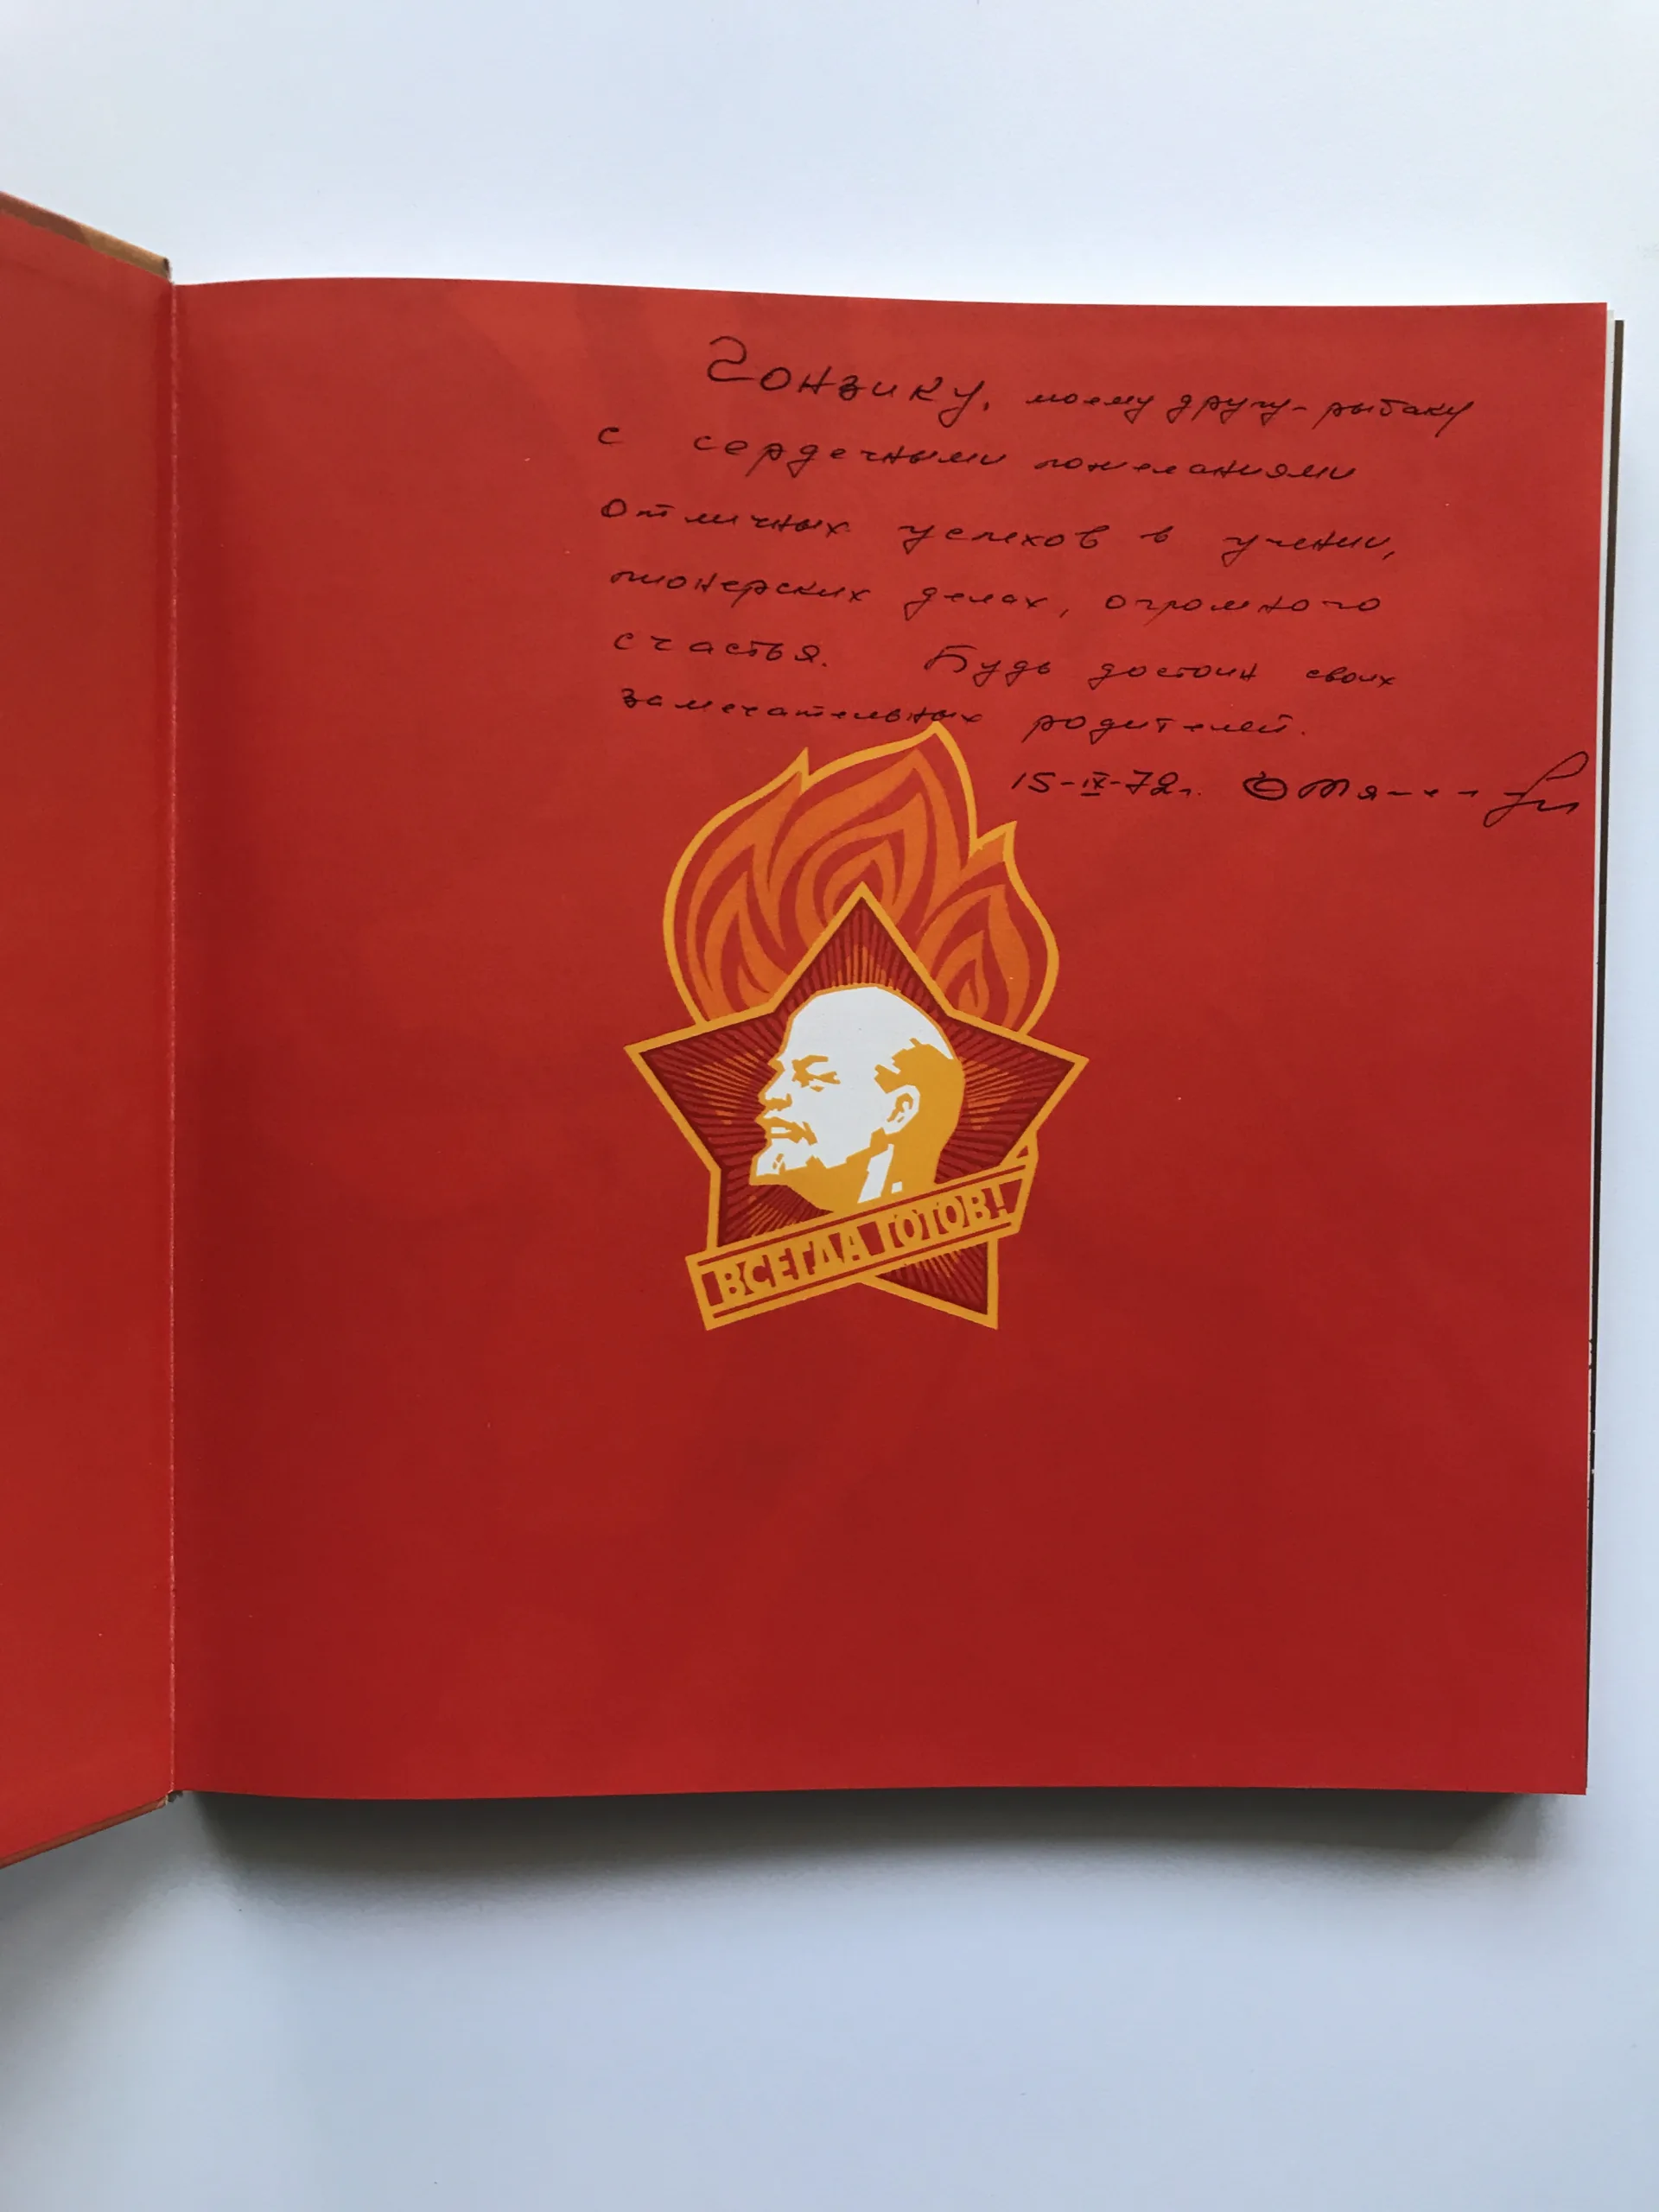 Гонзику, моему другу-рыбаку
с сердечными пожеланиями
отличных успехов в учении,
пионерских делах, огромного
счастья. Будь достоин своих
замечательных родителей.
15-IX-72г.
ВСЕГДА ГОТОВ!